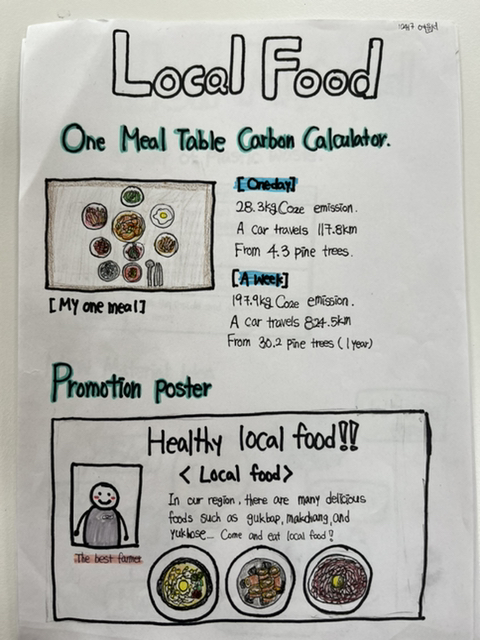 Local Food
One Meal Table Carbon Calculator.
[Oneday]
28.3kg Co2e emission.
A car travels 117.8km
From 4.3 pine trees.
[A week]
197.9kg Co2e emission.
A car travels 824.5km
From 30.2 pine trees (1 year)
[My one meal]
Promotion poster
Healthy local food!!
< Local food >
In our region, there are many delicious
foods such as gukbap, makchang, and
yukhoe... Come and eat local food!
The best farmer